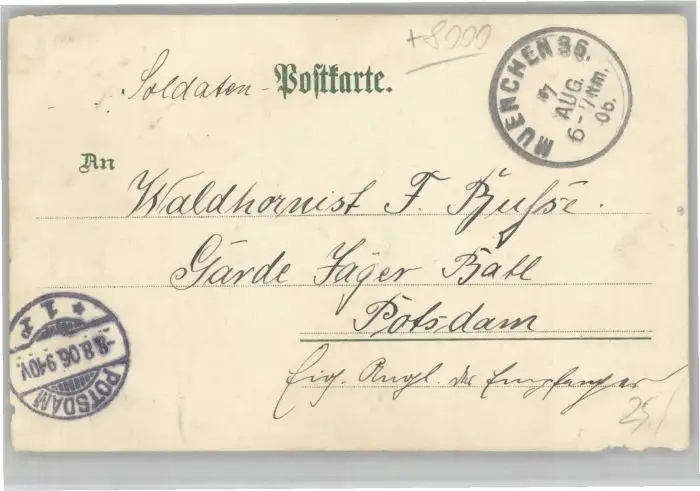 +8000
Soldaten - Postkarte.
MUENCHEN 36.
7 AUG.
6-7 Nm.
06.
An
Waldhornist F. Buhse.
Garde Jäger Batl
Potsdam
Eig. Angl. des Empfängers
POTSDAM
-8.8.06.9-10V.
* 1 P
25.